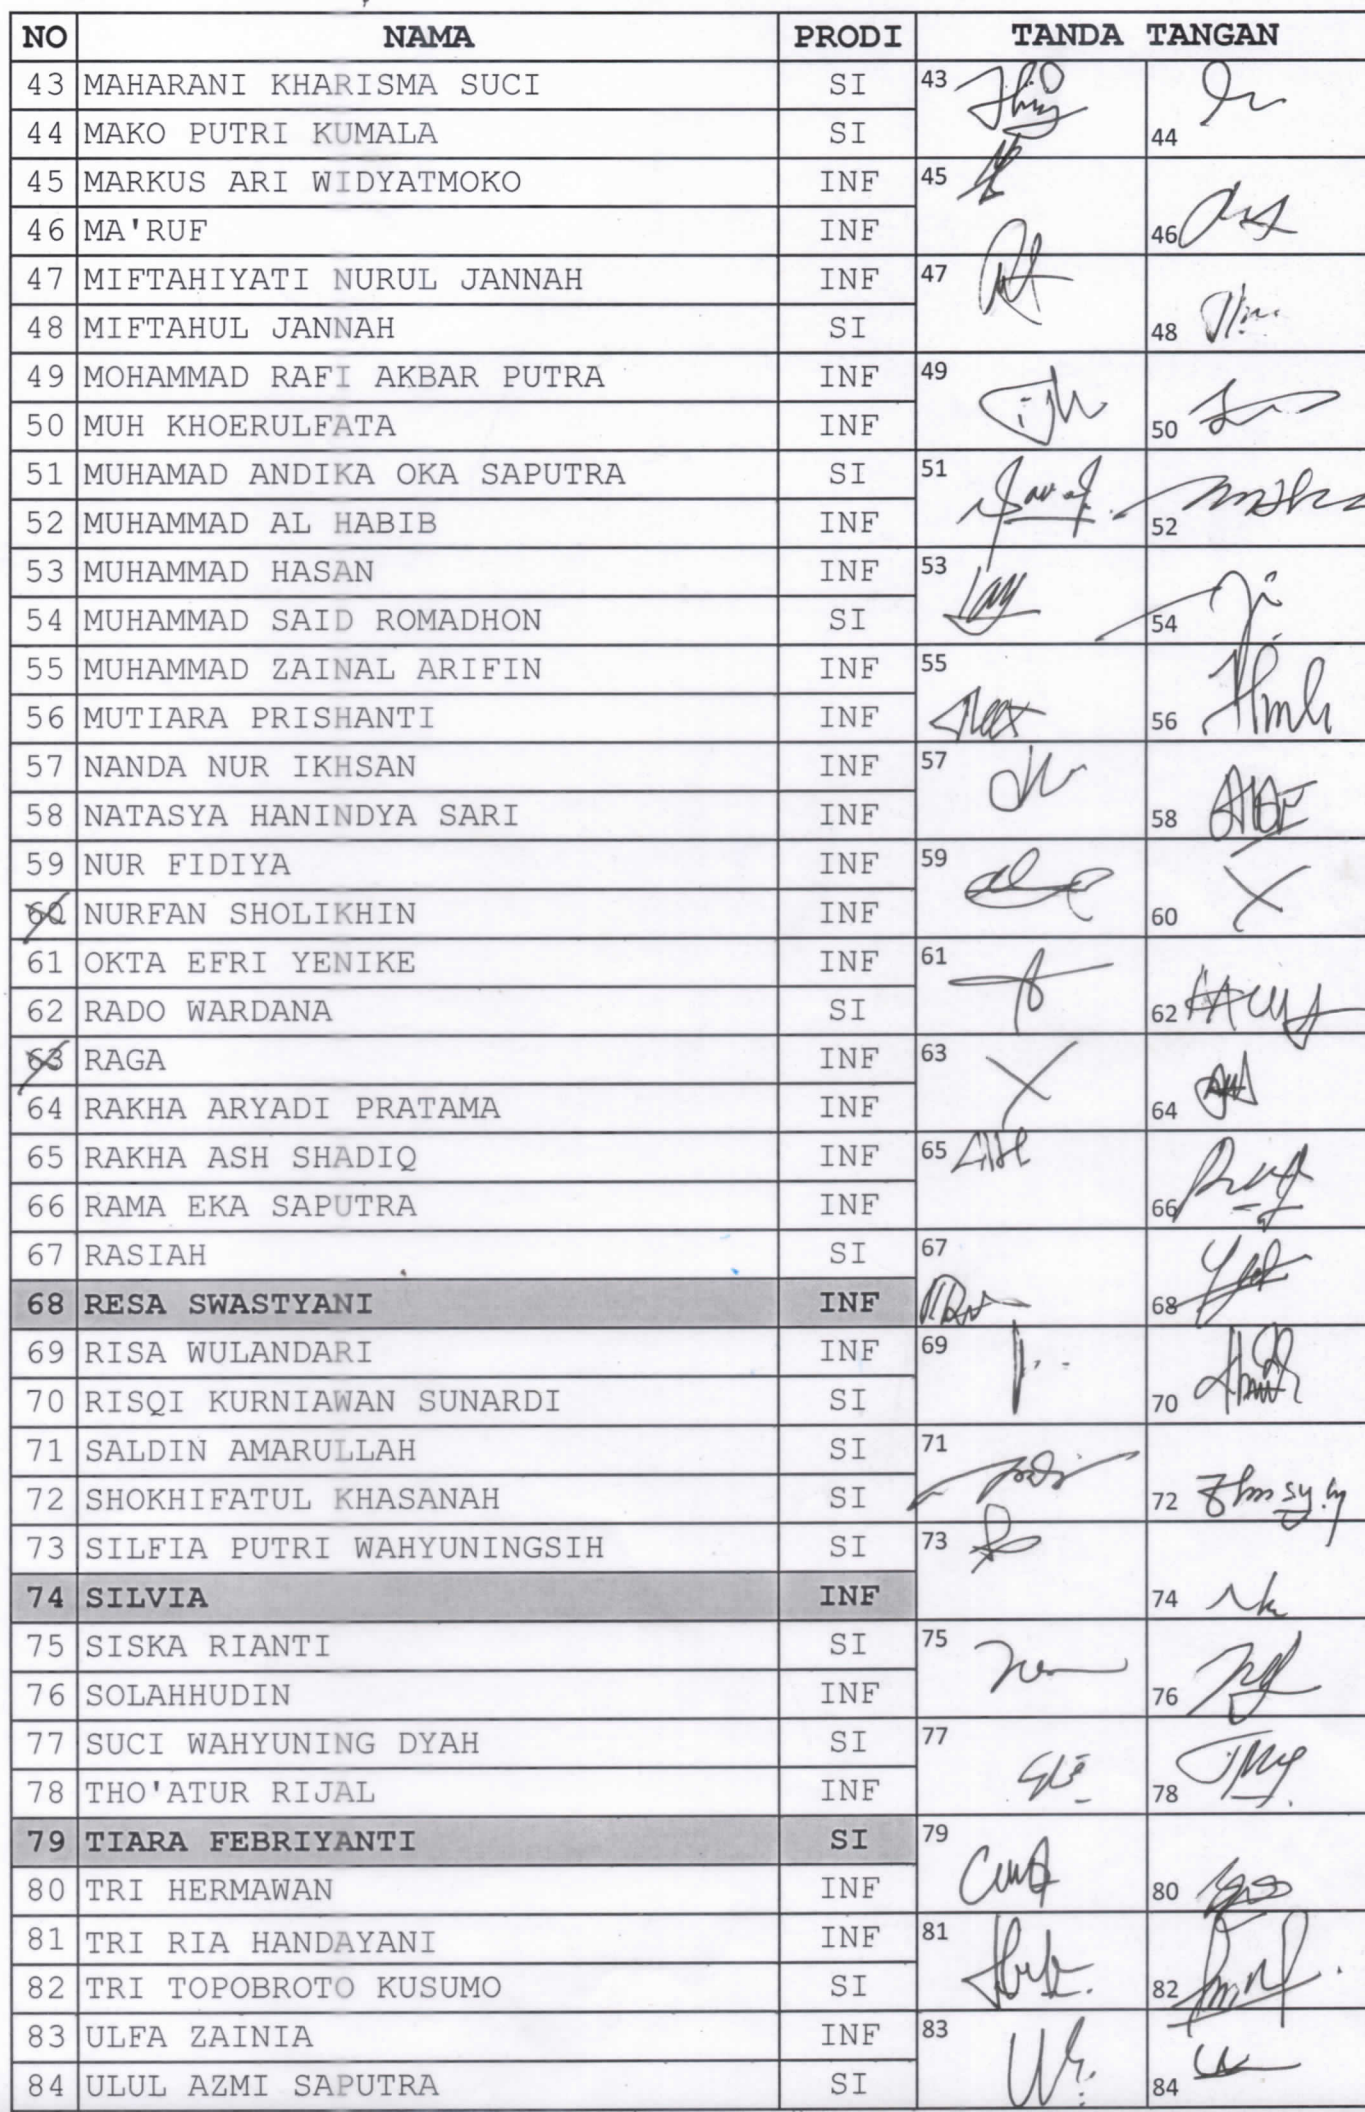 NO NAMA PRODI TANDA TANGAN
43 MAHARANI KHARISMA SUCI SI 43
44 MAKO PUTRI KUMALA SI 44
45 MARKUS ARI WIDYATMOKO INF 45
46 MA'RUF INF 46
47 MIFTAHIYATI NURUL JANNAH INF 47
48 MIFTAHUL JANNAH SI 48
49 MOHAMMAD RAFI AKBAR PUTRA INF 49
50 MUH KHOERULFATA INF 50
51 MUHAMAD ANDIKA OKA SAPUTRA SI 51
52 MUHAMMAD AL HABIB INF 52
53 MUHAMMAD HASAN INF 53
54 MUHAMMAD SAID ROMADHON SI 54
55 MUHAMMAD ZAINAL ARIFIN INF 55
56 MUTIARA PRISHANTI INF 56
57 NANDA NUR IKHSAN INF 57
58 NATASYA HANINDYA SARI INF 58
59 NUR FIDIYA INF 59
60 NURFAN SHOLIKHIN INF 60
61 OKTA EFRI YENIKE INF 61
62 RADO WARDANA SI 62
63 RAGA INF 63
64 RAKHA ARYADI PRATAMA INF 64
65 RAKHA ASH SHADIQ INF 65
66 RAMA EKA SAPUTRA INF 66
67 RASIAH SI 67
68 RESA SWASTYANI INF 68
69 RISA WULANDARI INF 69
70 RISQI KURNIAWAN SUNARDI SI 70
71 SALDIN AMARULLAH SI 71
72 SHOKHIFATUL KHASANAH SI 72
73 SILFIA PUTRI WAHYUNINGSIH SI 73
74 SILVIA INF 74
75 SISKA RIANTI SI 75
76 SOLAHHUDIN INF 76
77 SUCI WAHYUNING DYAH SI 77
78 THO'ATUR RIJAL INF 78
79 TIARA FEBRIYANTI SI 79
80 TRI HERMAWAN INF 80
81 TRI RIA HANDAYANI INF 81
82 TRI TOPOBROTO KUSUMO SI 82
83 ULFA ZAINIA INF 83
84 ULUL AZMI SAPUTRA SI 84